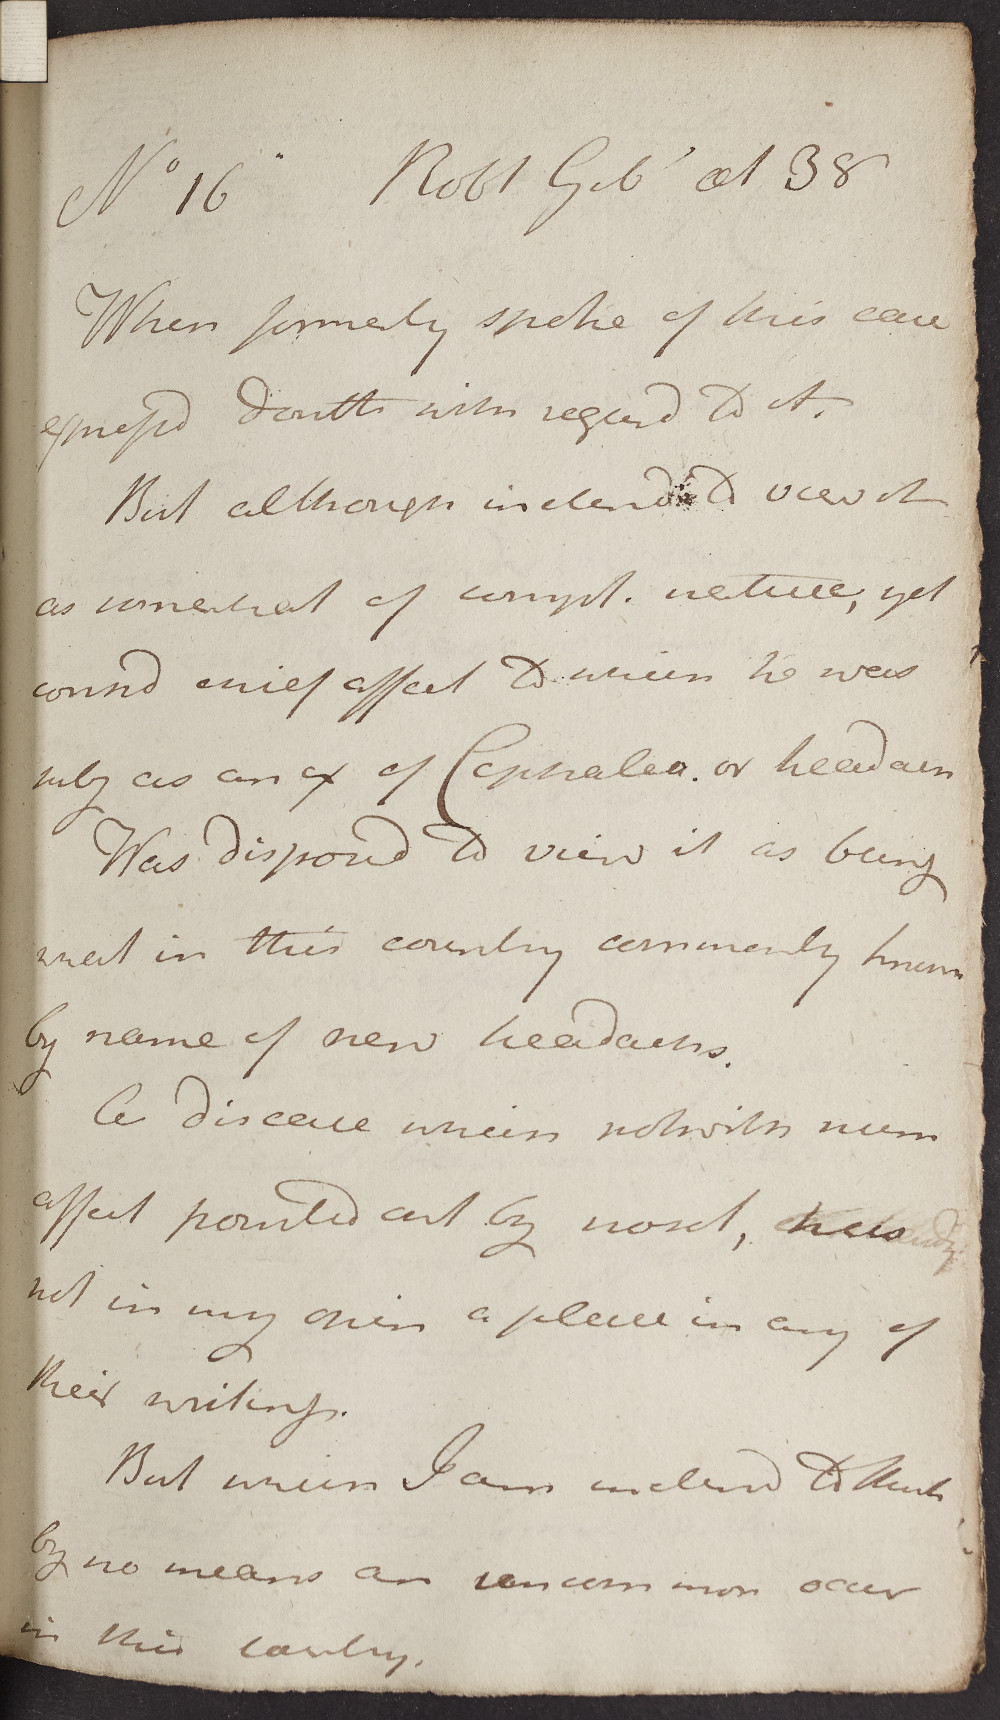 No 16 Robt Gib' æt 38
When formerly spoke of this case
express'd doubts with regard to it.
But although inclend to view it
as somewhat of compt. nature, yet
consd chief affect to which he was
subj as an ex of Cephalea. or headach
Was disposed to view it as being
what in this country commonly known
by name of new headachs.
A disease which notwith num
affect pointed out by nosol, has
not in my opin a place in any of
their writings.
But which I am inclend to think
by no means an uncommon occur
in this country.